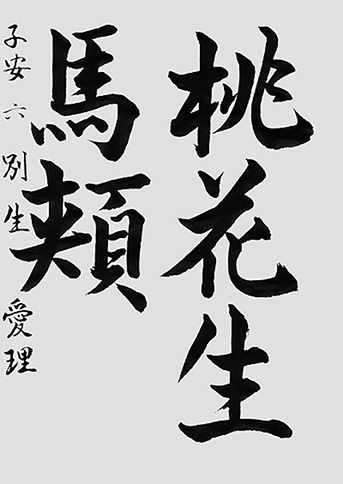 桃花生
馬頰
子安 六 別生 愛理